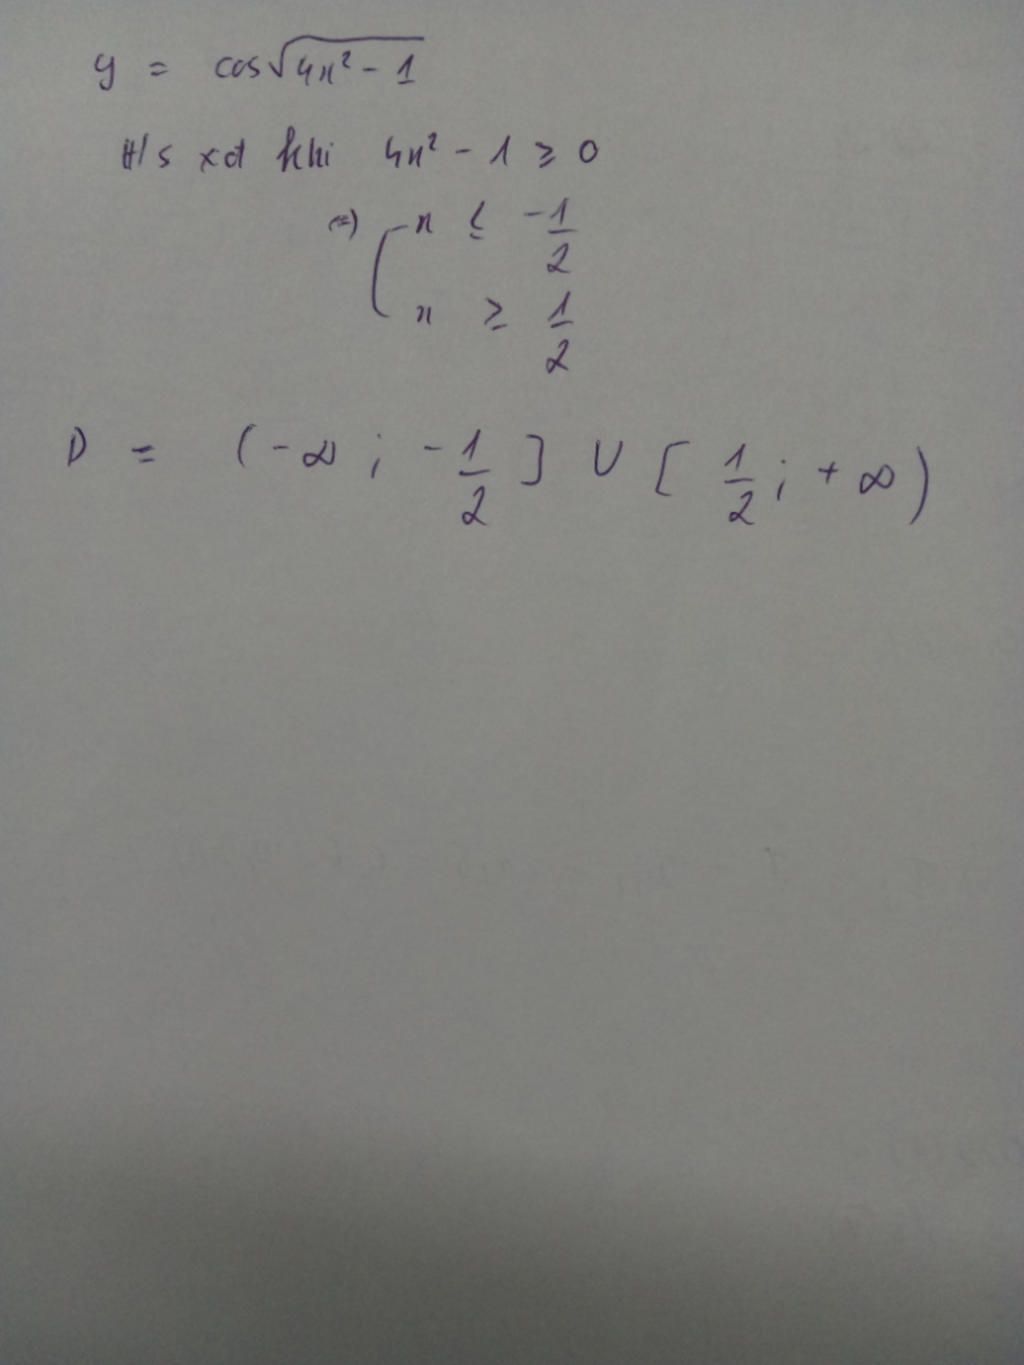 y = cos√(4x² - 1)
H/s xđ khi 4x² - 1 ≥ 0
⇔ [ x ≤ -1/2
x ≥ 1/2
D = (-∞ ; -1/2 ] ∪ [ 1/2 ; +∞ )